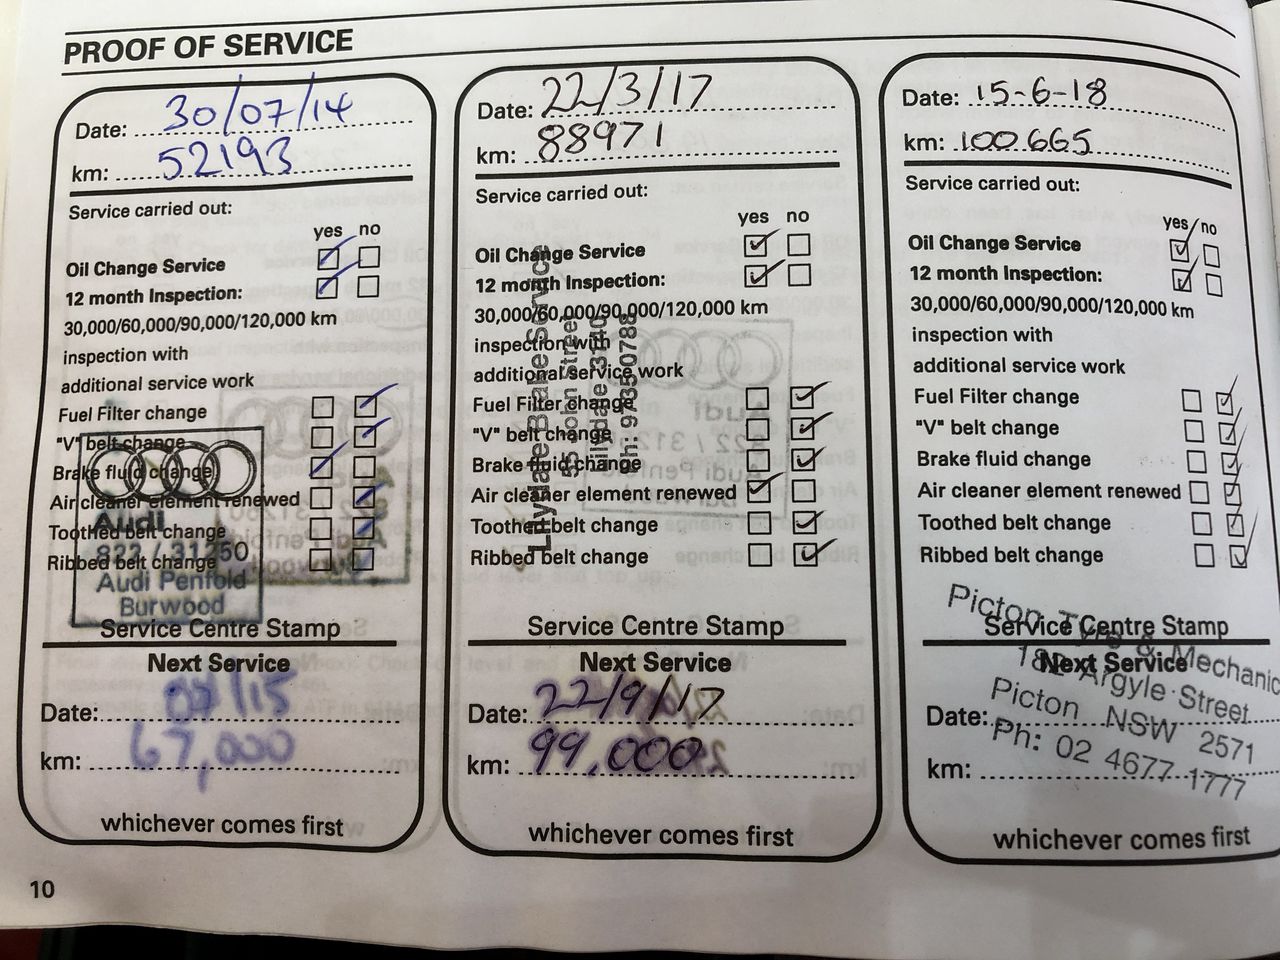 PROOF OF SERVICE
Date: 30/07/14
km: 52193
Service carried out:
yes no
Oil Change Service
12 month Inspection:
30,000/60,000/90,000/120,000 km
inspection with
additional service work
Fuel Filter change
"V" belt change
Brake fluid change
Air cleaner element renewed
Toothed belt change
Ribbed belt change
Audi
822 / 31250
Audi Penfold
Burwood
Service Centre Stamp
Next Service
Date: 07/15
km: 67,000
whichever comes first
Date: 22/3/17
km: 88971
Service carried out:
yes no
Oil Change Service
12 month Inspection:
30,000/60,000/90,000/120,000 km
inspection with
additional service work
Fuel Filter change
"V" belt change
Brake fluid change
Air cleaner element renewed
Toothed belt change
Ribbed belt change
Lilydale Brake Service
John Street
Lilydale 3140
Ph: 97350788
Service Centre Stamp
Next Service
Date: 22/9/17
km: 99,000
whichever comes first
Date: 15-6-18
km: 100665
Service carried out:
yes/no
Oil Change Service
12 month Inspection:
30,000/60,000/90,000/120,000 km
inspection with
additional service work
Fuel Filter change
"V" belt change
Brake fluid change
Air cleaner element renewed
Toothed belt change
Ribbed belt change
Service Centre Stamp
Picton Tyre & Mechanic
Argyle Street
Picton NSW 2571
Ph: 02 4677 1777
Next Service
Date:
km:
whichever comes first
10